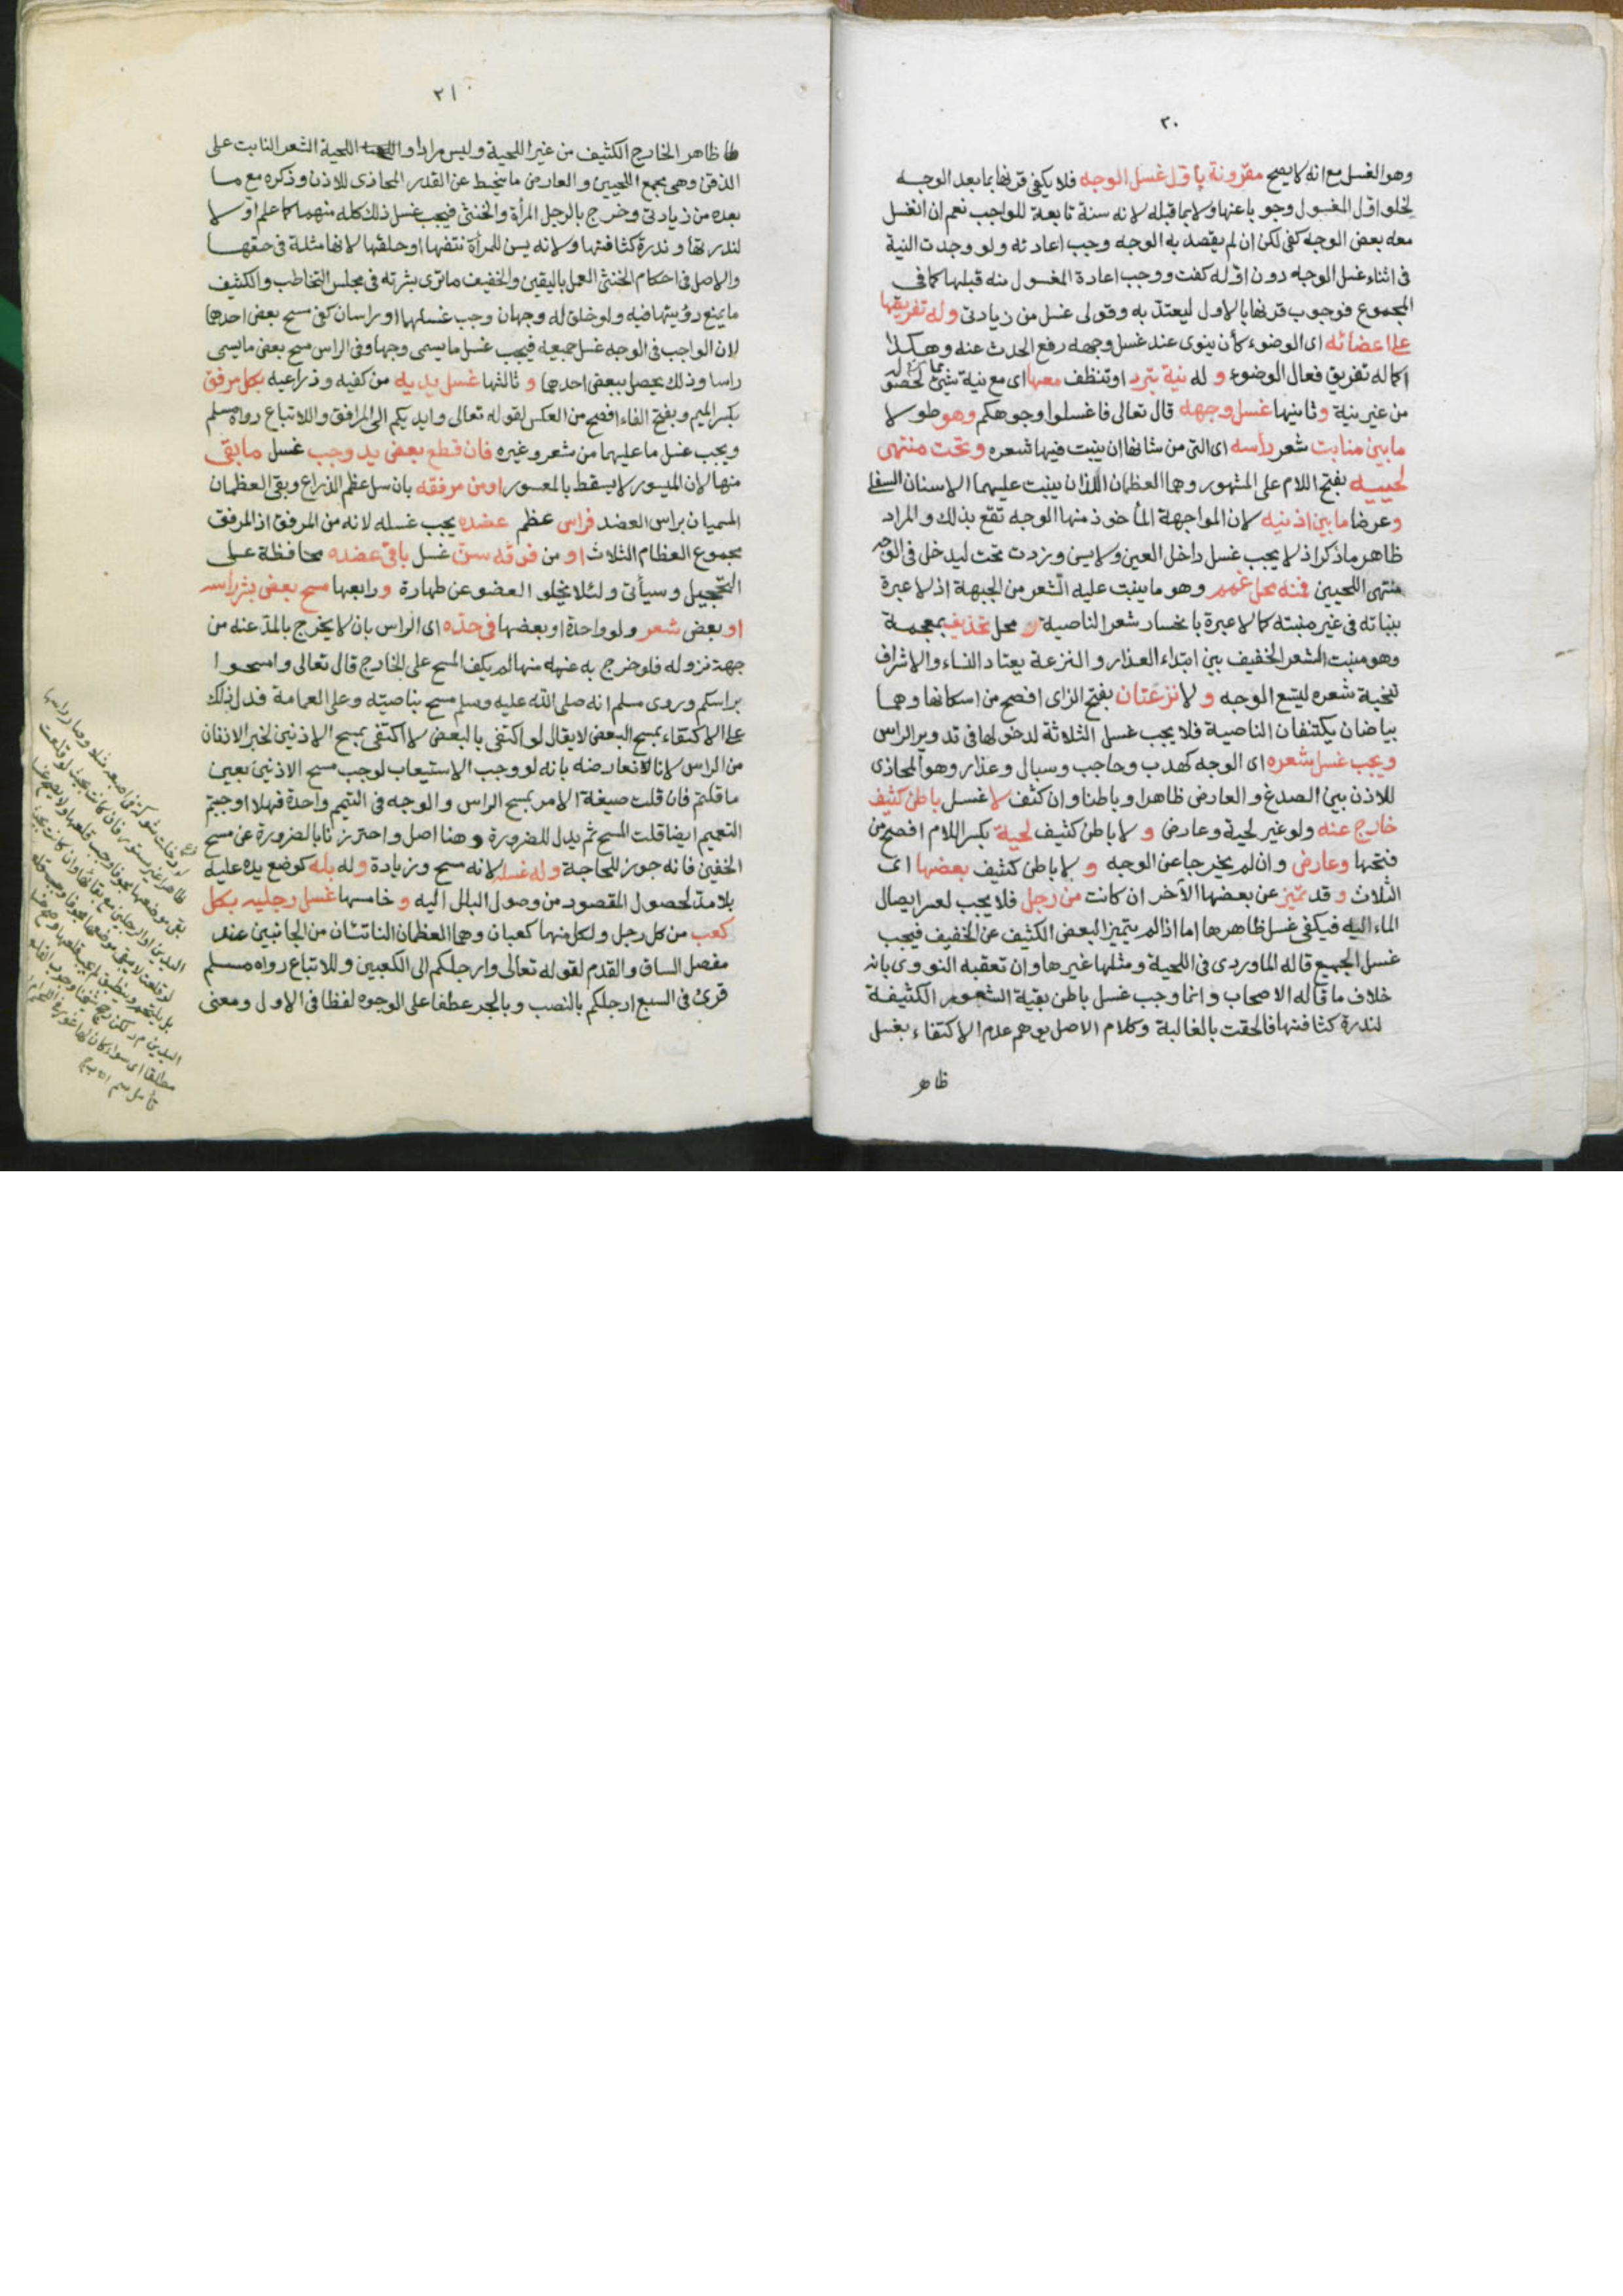 ٢٠
وهو الغسل مع انه لا يصح مقرونة باول غسل الوجه فلا يكفي قرنها بما بعد الوجه
لخلو اول المغسول وجوبا عنها ولا بما قبله لانه سنة تابعة للواجب نعم ان انغسل
معه بعض الوجه كفى لكن ان لم يقصد به الوجه وجب اعادته ولو وجدت النية
في اثناء غسل الوجه دون اوله كفت ووجب اعادة المغسول منه قبلها كما في
المجموع فوجوب قرنها بالاول ليعتد به وقولي غسل من زيادتي وله تفريقها
على اعضائه اي الوضوء كأن ينوي عند غسل وجهه رفع الحدث عنه وهكذا
كما له تفريق افعال الوضوء و له نية تبرد او تنظف معها اي مع نية شيئ مما مر لحصوله
من غير نية وثانيها غسل وجهه قال تعالى فاغسلوا وجوهكم وهو طولا
ما بين منابت شعر رأسه اى التي من شانها ان ينبت فيها شعره وتحت منتهى
لحييه بفتح اللام على المشهور وهما العظمان اللذان ينبت عليهما الاسنان السفلى
وعرضا ما بين اذنيه لان المواجهة المأخوذ منها الوجه تقع بذلك والمراد
ظاهر ما ذكر اذ لا يجب غسل داخل العين ولا يسن وزدت تحت ليدخل في الوجه
منتهى اللحيين فمنه محل غمم وهو ما ينبت عليه الشعر من الجبهة اذ لا عبرة
بنباته في غير منبته كما لا عبرة بانحسار شعر الناصية و محل تحذيف بمعجمة
وهو منبت الشعر الخفيف بين ابتداء العذار والنزعة يعتاد النساء والاشراف
تنحية شعره ليتسع الوجه و لا نزعتان بفتح الزاى افصح من اسكانها وهما
بياضان يكتنفان الناصية فلا يجب غسل الثلاثة لدخولها في تدوير الراس
ويجب غسل شعره اى الوجه كهدب وحاجب وسبال وعذار وهو المحاذى
للاذن بين الصدغ والعارض ظاهرا وباطنا وان كثف لا غسل باطن كثيف
خارج عنه ولو غير لحية وعارض و لا باطن كثيف لحية بكسر اللام افصح من
فتحها وعارض وان لم يخرجا عن الوجه و لا باطن كثيف بعضها اى
الثلاث و قد تميز عن بعضها الآخر ان كانت من رجل فلا يجب لعسر ايصال
الماء اليه فيكفى غسل ظاهرها اما اذا لم يتميز البعض الكثيف عن الخفيف فيجب
غسل الجميع قاله الماوردى في اللحية ومثلها غيرها وان تعقبه النووى بانه
خلاف ما قاله الاصحاب وانما وجب غسل باطن بقية الشعور الكثيفة
لندرة كثافتها فالحقت بالغالبة وكلام الاصل يوهم عدم الاكتفاء بغسل
ظاهر
٢١
ظاهر الخارج الكثيف من غير اللحية وليس مرادا و اللحية الشعر النابت على
الذقن وهي مجمع اللحيين والعارض ما ينحط عن القدر المحاذى للاذن وذكره مع ما
بعده من زيادتي وخرج بالرجل المرأة والخنثى فيجب غسل ذلك كله منهما كما علم اولا
لندرتها وندرة كثافتها ولانه يسن للمرأة نتفها او حلقها لانها مثلة في حقها
والاصل في احكام الخنثى العمل باليقين والخفيف ما ترى بشرته في مجلس التخاطب والكثيف
ما يمنع رؤيتها فيه ولو خلق له وجهان وجب غسلهما او راسان كفى مسح بعض احدهما
لان الواجب في الوجه غسل جميعه فيجب غسل ما يسمى وجها وفي الراس مسح بعض ما يسمى
راسا وذلك يحصل ببعض احدهما و ثالثها غسل يديه من كفيه وذراعيه بكل مرفق
بكسر الميم وبفتح الفاء افصح من العكس لقوله تعالى وايديكم الى المرافق وللاتباع رواه مسلم
ويجب غسل ما عليهما من شعر وغيره فان قطع بعض يد وجب غسل ما بقي
منها لان الميسور لا يسقط بالمعسور او من مرفقه بان سل عظم الذراع وبقي العظمان
المسميان براس العضد فراس عظم عضده يجب غسله لانه من المرفق اذ المرفق
مجموع العظام الثلاث او من فوقه سن غسل باقي عضده محافظة على
التحجيل وسيأتي ولئلا يخلو العضو عن طهارة و رابعها مسح بعض بشر راسه
او بعض شعر ولو واحدة او بعضها في حده اى الراس بان لا يخرج بالمد عنه من
جهة نزوله فلو خرج به عنه منها لم يكف المسح على الخارج قال تعالى وامسحوا
براسكم وروى مسلم انه صلى الله عليه وسلم مسح بناصيته وعلى العمامة فدل ذلك
على الاكتفاء بمسح البعض لا يقال لو اكتفى بالبعض لاكتفى بمسح الاذنين لخبر الاذنان
من الراس لانا نعارضه بانه لو وجب الاستيعاب لوجب مسح الاذنين بعين
ما قلتم فان قلت صيغة الامر بمسح الراس والوجه في التيمم واحدة فهلا اوجبتم
التعميم ايضا قلت المسح ثم بدل للضرورة وهنا اصل واحترزنا بالضرورة عن مسح
الخفين فانه جوز للحاجة وله غسله لانه مسح وزيادة وله بله كوضع يده عليه
بلا مد لحصول المقصود من وصول البلل اليه و خامسها غسل رجليه بكل
كعب من كل رجل ولكل منهما كعبان وهما العظمان الناتئان من الجانبين عند
مفصل الساق والقدم لقوله تعالى وارجلكم الى الكعبين وللاتباع رواه مسلم
قرئ في السبع ارجلكم بالنصب وبالجر عطفا على الوجوه لفظا في الاول ومعنى